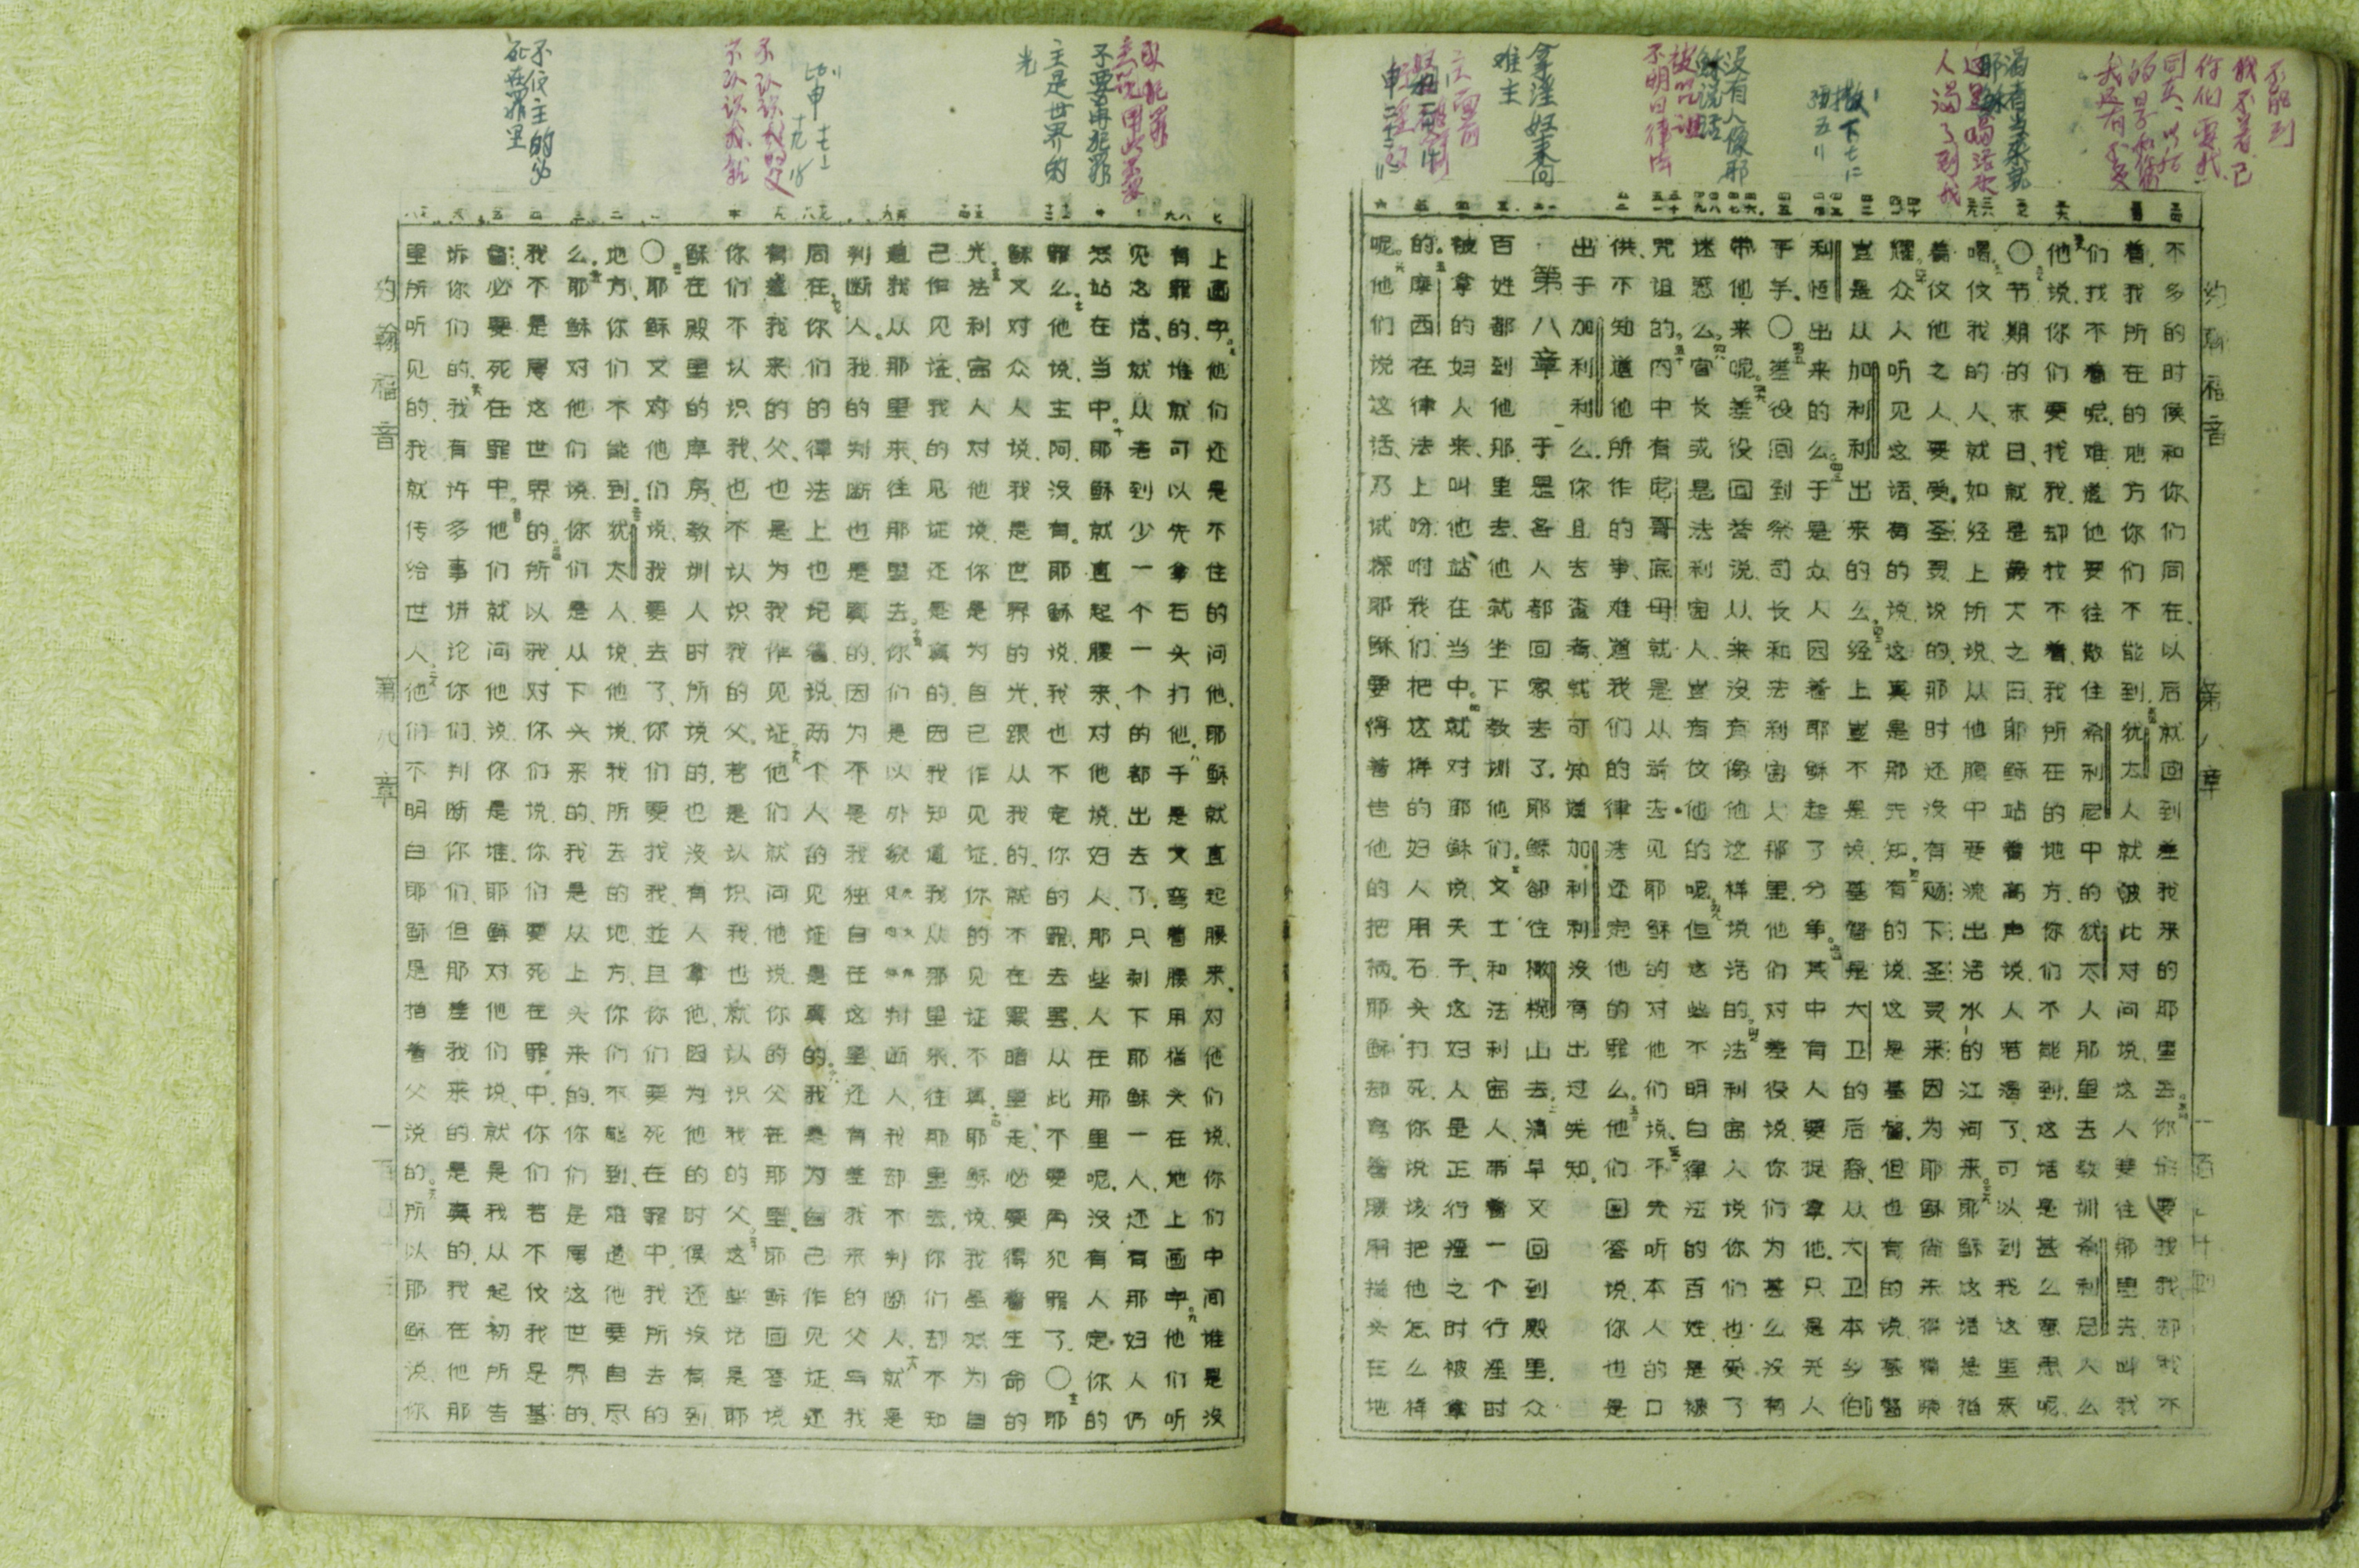 不能到
我不着.已
你们要我
约翰福音
第八章
不多的时候和你们同在.以后就回到差我来的那里去.你们要找我却找不
着.我所在的地方你们不能到.犹太人就彼此对问说.这人要往那里去叫我
们找不着呢.难道他要往散住希利尼中的犹太人那里去教训希利尼人么
他说.你们要找我.我却找不着.我所在的地方.你们不能到.这话是甚么意思呢
〇节期的末日.就是最大之日.耶稣站着高声说.人若渴了.可以到我这里来
喝.信我的人.就如经上所说.从他腹中要流出活水的江河来.耶稣这话是指
着信他之人.要受圣灵说的.那时还没有赐下圣灵来.因为耶稣尚未得着荣
耀.众人听见这话.有的说.这真是那先知.有的说.这是基督.但也有的说.基督
岂是从加利利出来的么.经上岂不是说.基督是大卫的后裔.从大卫本乡伯
利恒出来的么.于是众人因着耶稣起了分争.其中有人要捉拿他.只是无人
下手.〇差役回到祭司长和法利赛人那里.他们对差役说.你们为甚么没有
带他来呢.差役回答说.从来没有像他这样说话的.法利赛人说.你们也受了
迷惑么.官长或是法利赛人.岂有信他的呢.但这些不明白律法的百姓.是被
咒诅的.内中有尼哥底母.就是从前去见耶稣的.对他们说.不先听本人的口
供.不知道他所作的事.难道我们的律法还定他的罪么.他们回答说.你也是
出于加利利么.你且去查看就可知道加利利没有出过先知.
第八章 于是各人都回家去了.耶稣却往橄榄山去.清早又回到殿里.众
百姓都到他那里去.他就坐下教训他们.文士和法利赛人.带着一个行淫时
被拿的妇人来.叫他站在当中.就对耶稣说.夫子.这妇人是正行淫之时被拿
的.摩西在律法上吩咐我们把这样的妇人用石头打死.你说该把他怎么样
呢.他们说这话.乃试探耶稣.要得着告他的把柄.耶稣却弯着腰用指头在地
没有人像耶
稣说话
被咒诅
不明白律法
拿淫妇来问
难主
上画字.他们还是不住的问他.耶稣就直起腰来.对他们说.你们中间谁是没
有罪的.就可以先拿石头打他.于是又弯着腰用指头在地上画字.他们听
见这话.就从老到少一个一个的都出去了.只剩下耶稣一人.还有那妇人仍
然站在当中.耶稣就直起腰来.对他说.妇人.那些人在那里呢.没有人定你的
罪么.他说.主阿.没有.耶稣说.我也不定你的罪.去罢.从此不要再犯罪了.〇耶
稣又对众人说.我是世界的光.跟从我的.就不在黑暗里走.必要得着生命的
光.法利赛人对他说.你是为自己作见证.你的见证不真.耶稣说.我虽然为自
己作见证.我的见证还是真的.因我知道我从那里来.往那里去.你们却不知
道我从那里来.往那里去.你们是以外貌判断人.我却不判断人.就是
判断人.我的判断也是真的.因为不是我独自在这里.还有差我来的父与我
同在.你们的律法上也记着说.两个人的见证是真的.我是为自己作见证.还
有差我来的父.也是为我作见证.他们就问他说.你的父在那里.耶稣回答说
你们不认识我.也不认识我的父.若是认识我.也就认识我的父.这些话是耶
稣在殿里的库房.教训人时所说的.也没有人拿他.因为他的时候还没有到
〇耶稣又对他们说.我要去了.你们要找我.并且你们要死在罪中.我所去的
地方.你们不能到.犹太人说.他说.我所去的地方.你们不能到.难道他要自尽
么.耶稣对他们说.你们是从下头来的.我是从上头来的.你们是属这世界的
我不是属这世界的.所以我对你们说.你们要死在罪中.你们若不信我是基
督.必要死在罪中.他们就问他说.你是谁.耶稣对他们说.就是我从起初所告
诉你们的.我有许多事讲论你们判断你们.但那差我来的是真的.我在他那
里所听见的.我就传给世人.他们不明白耶稣是指着父说的.所以耶稣说.你
不要再犯罪
主是世界的
光
不认识我的父
不认识我就
不信主的必
死在罪里
约翰福音
第八章